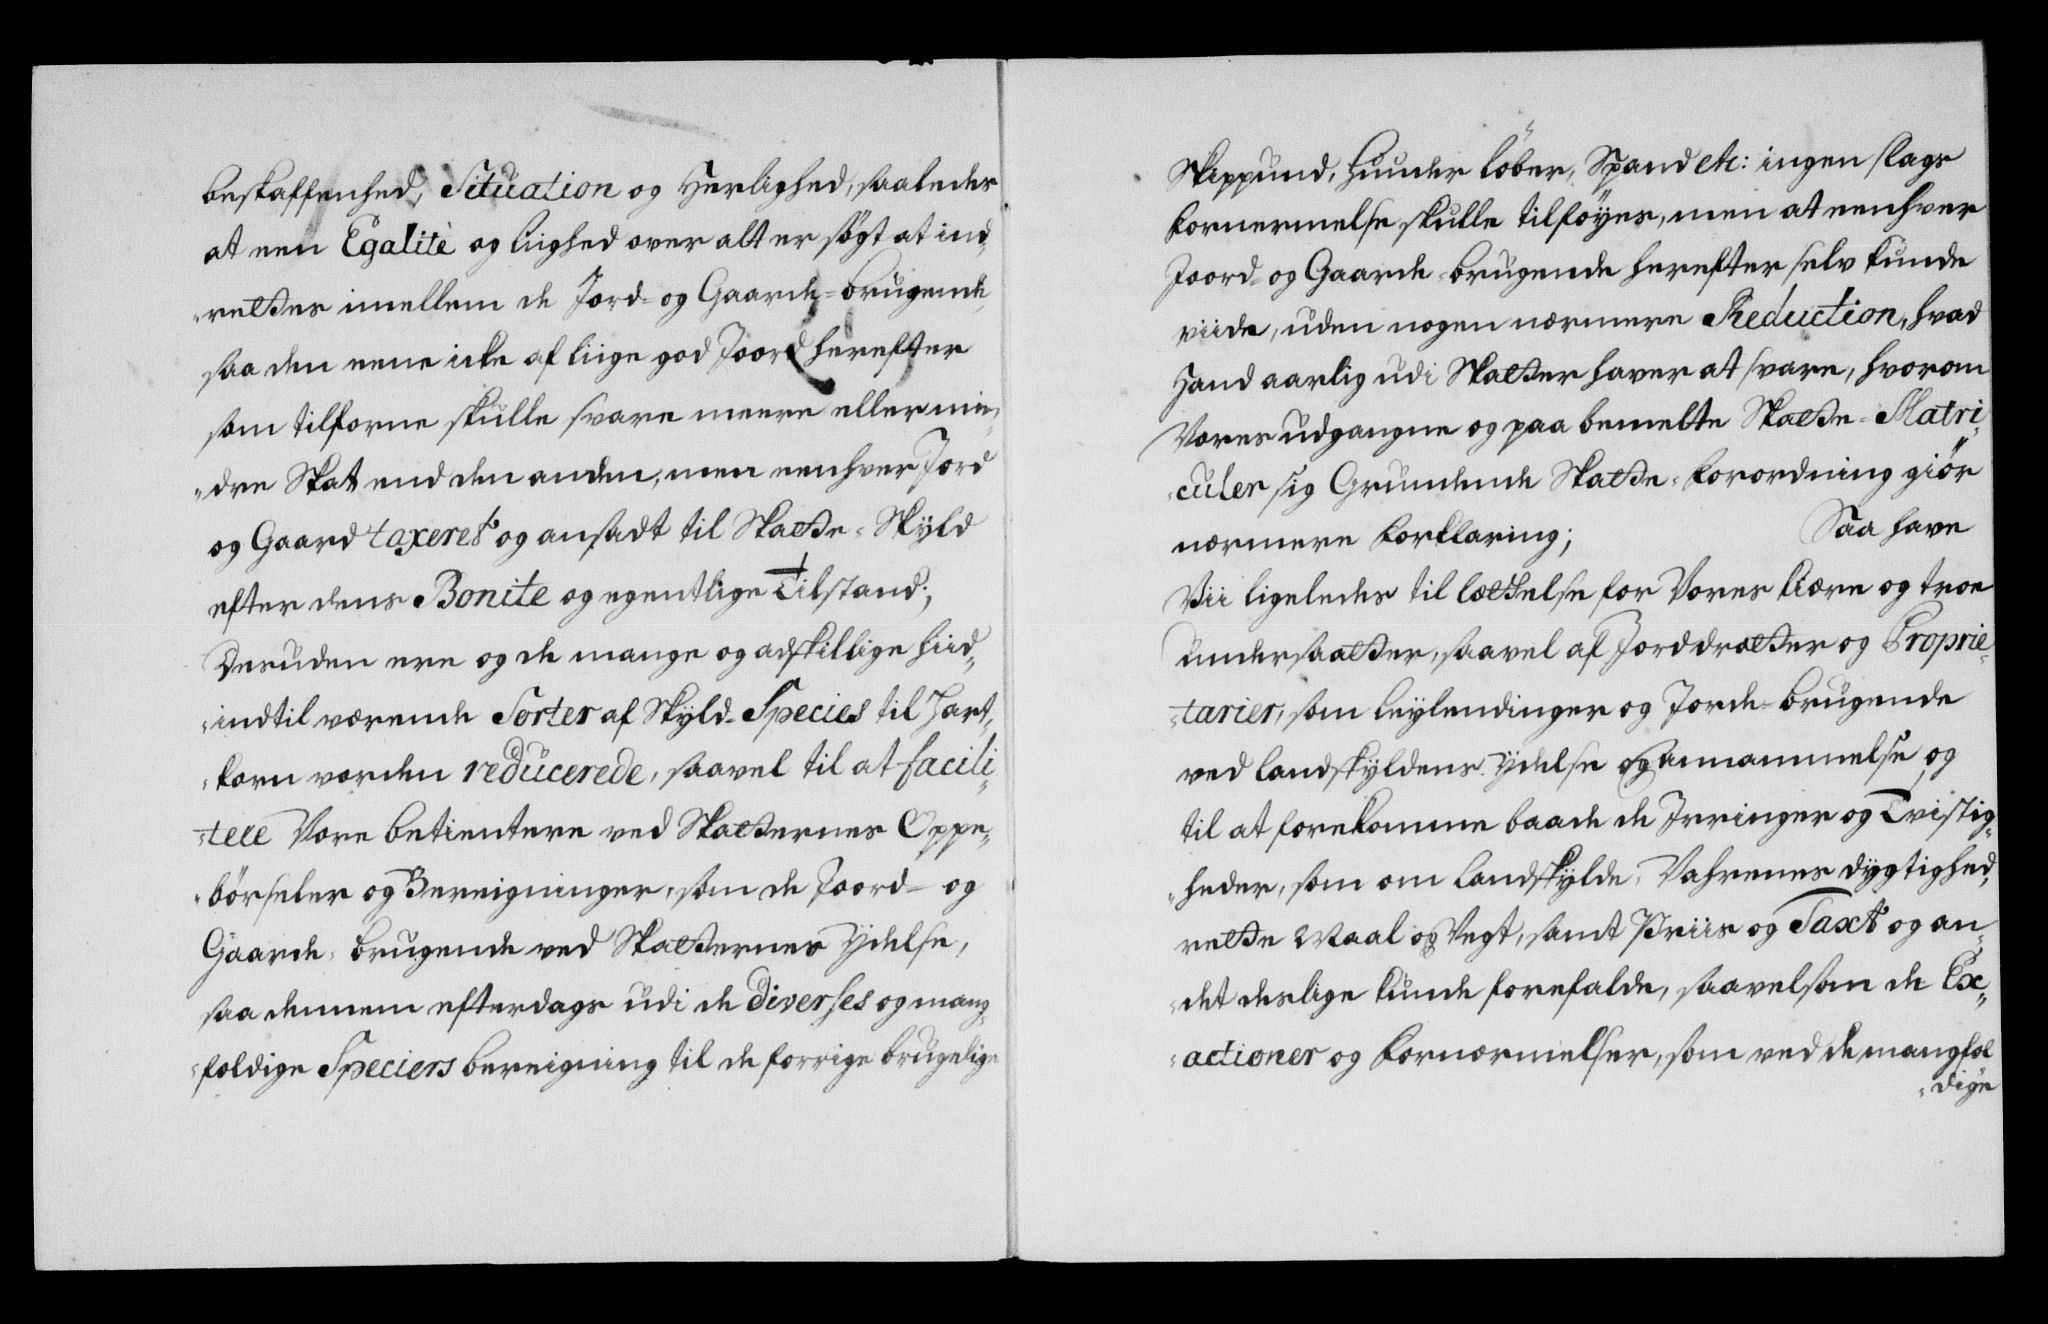 beskaffenhed, Situation og Herlighed, saaledes
at een Egalitè og liighed over alt er søgt at ind„
„rettes imellem de Jord- og Gaarde-brugende,
saa den eene icke af liige god Joord herefter
som tilforne skulle svare meere eller min„
„dre Skat end den anden, men eenhver Jord
og Gaard taxeret og ansadt til Skatte-Skÿld
efter dens Bonite og egentlige Tilstand;
Desuden ere og de mange og adskillige hiid„
„indtil værende Sorter af Skÿld-Species til Hart„
„korn vorden reducerede, saavel til at facili„
„tere Vore betientere ved Skatternes Oppe„
„børseler og Bereigninger, som de Joord- og
Gaarde-brugende ved Skatternes Ÿdelse,
saa dennem efterdags udi de diverses og mang„
„foldige Speciers bereigning til de forrige brugelige
Skippund, Huuder løber, Spand etc: ingen slags
fornermelse skulle tilføÿes, men at eenhver
Joord- og Gaarde-brugende herefter selv kunde
viide, uden nogen nærmere Reduction, hvad
Hand aarlig udi Skatter haver at svare, hvorom
Vores udgangne og paa bemelte Skatte-Matri„
„culer sig Grundende Skatte-forordning giør
nærmere forklaring; Saa have
Vii ligeledes til lættelse for Vores kiære og troe
undersaatter, saavel af Jorddrotter og Proprie„
„tarier, som leÿlendinger og Jorde-brugende
ved landskÿldens Ÿdelse og annammelse og
til at forekomme baade de Irringer og Tvistig„
„heder, som om landskÿlde-Vahrenes dÿgtighed,
rette Maal og Vegt, samt Priis og Taxt og an„
„det deslige kunde forefalde, saavelsom de Ex„
„actioner og fornærmelser, som ved de mangfol
„dige